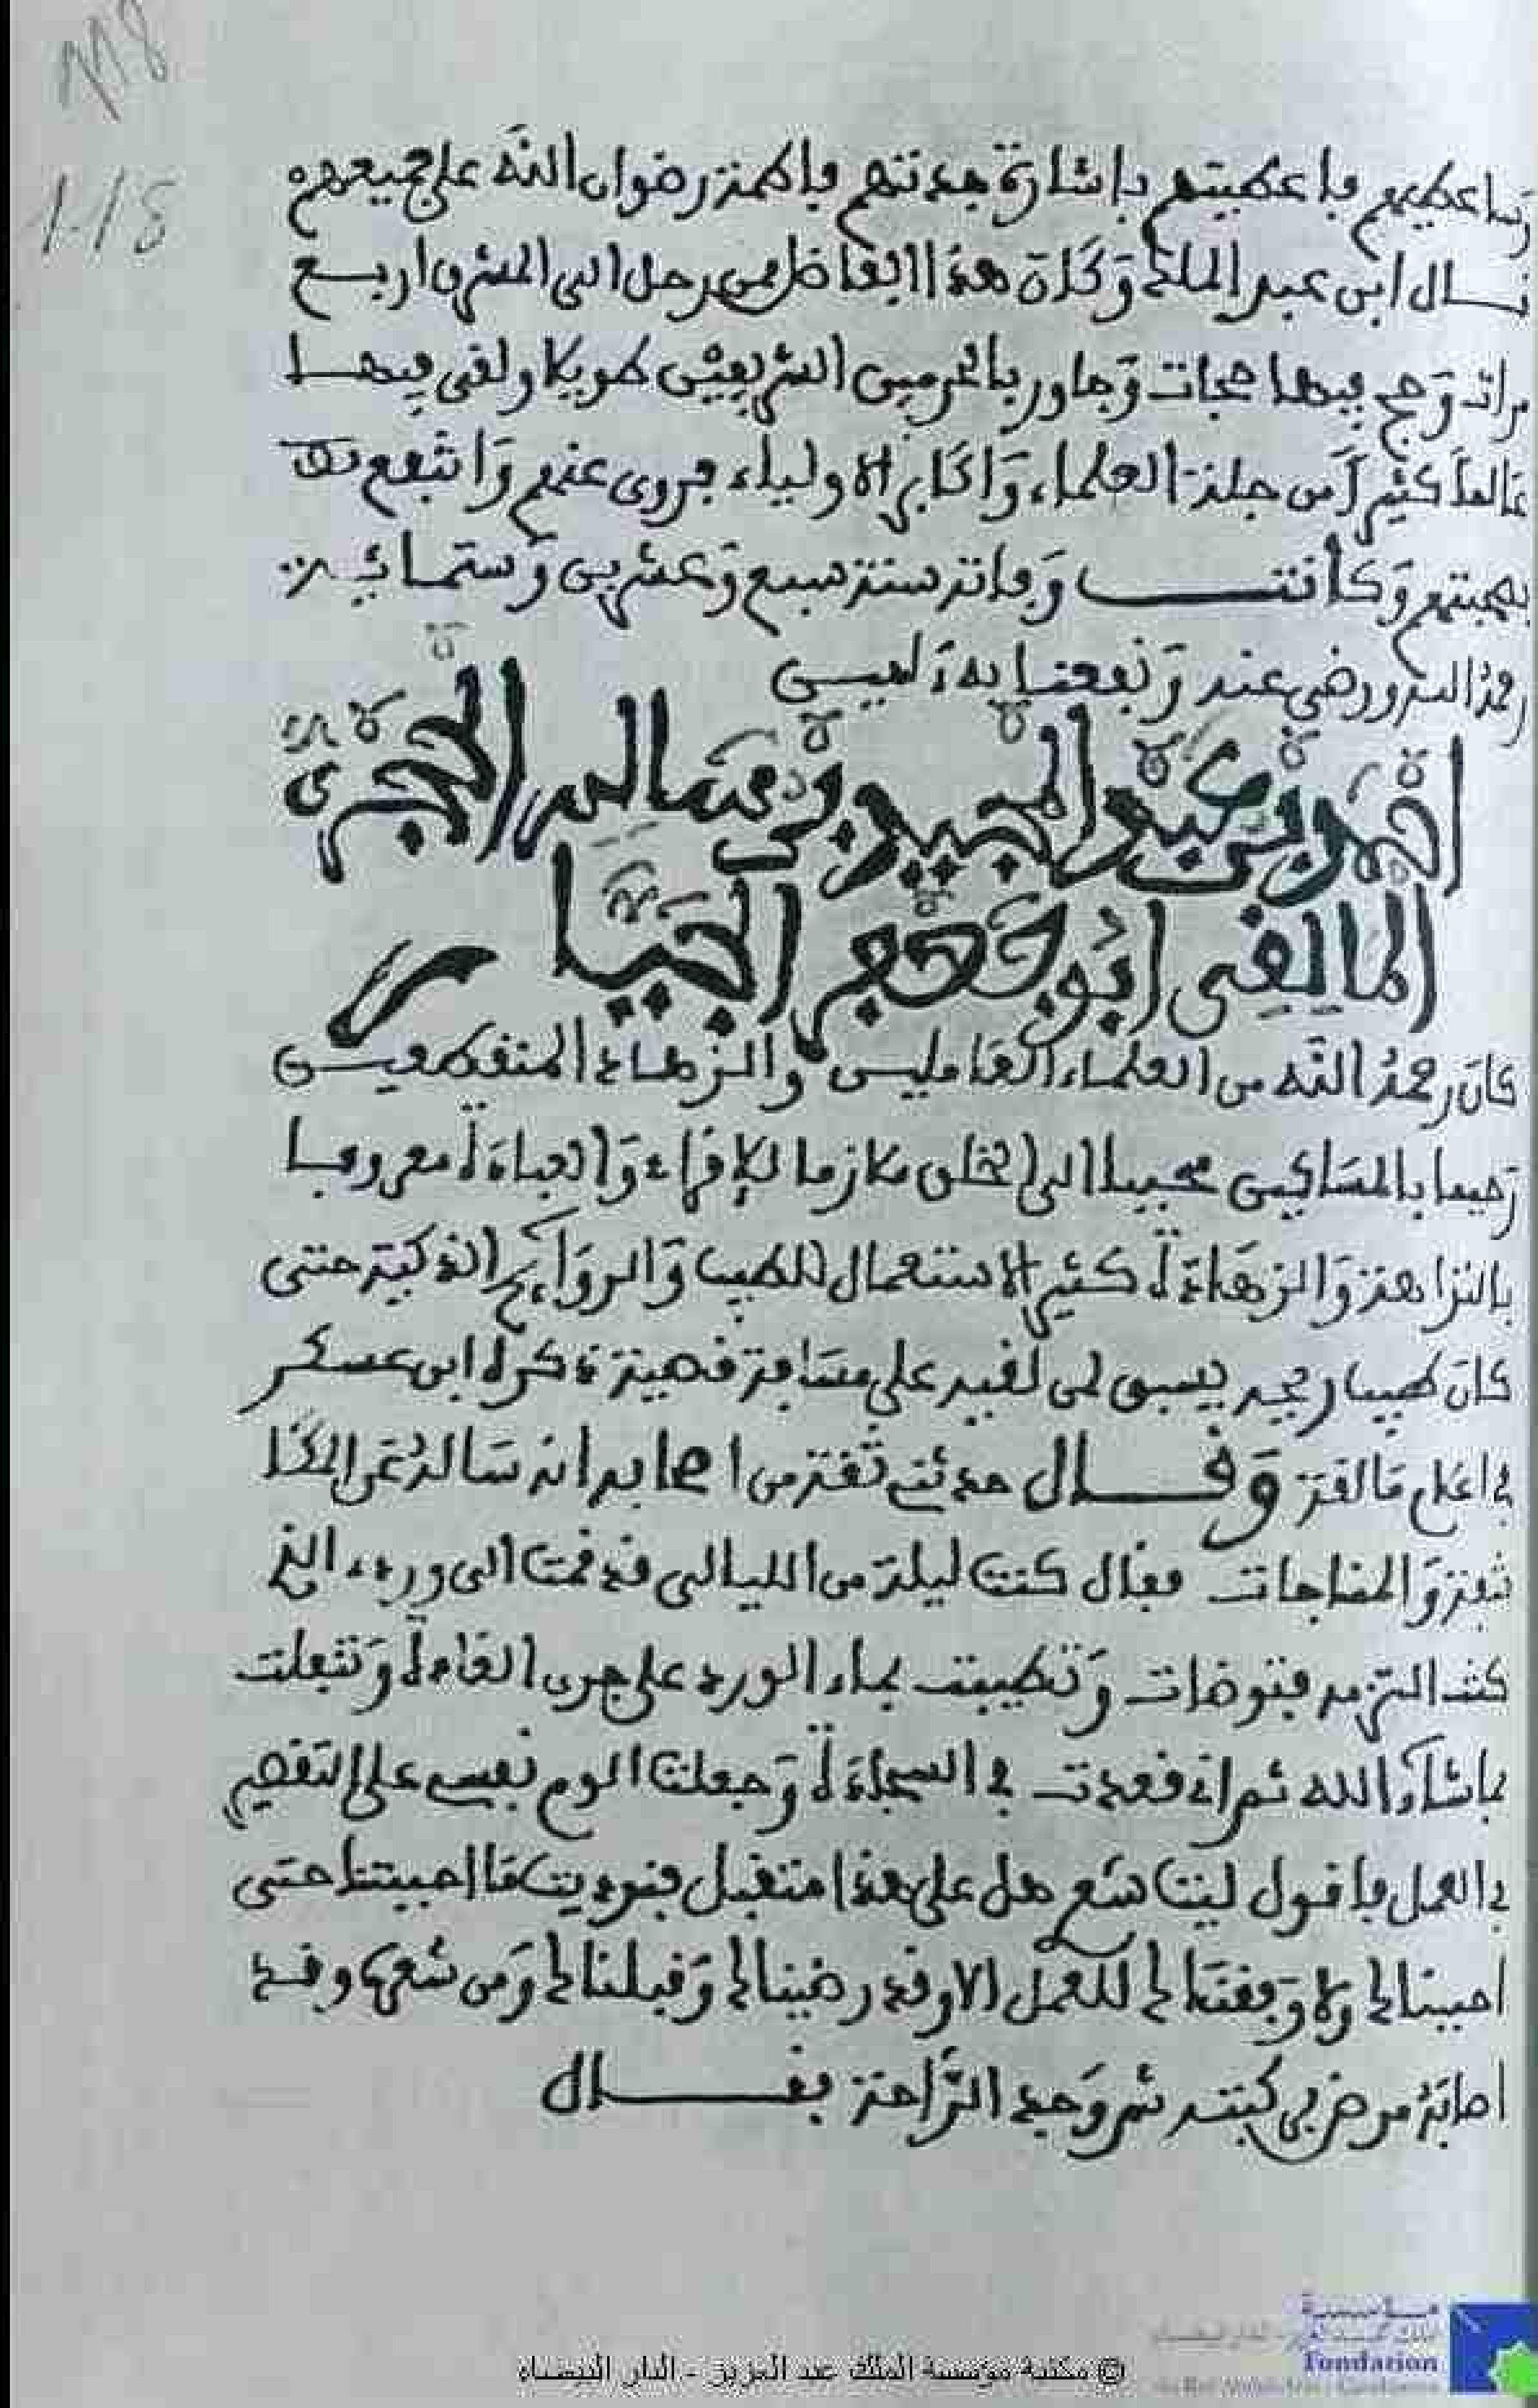 118
118
فأعطيهم فأعطيتهم بإشارة جدتهم فاطمة رضوان الله على جميعهم
قال ابن عبد الملك وكان هذا الفاضل ممن رحل الى المشرق اربع
مرات وحج فيها حجات وجاور بالحرمين الشريفين طويلا ولقي فيها
عالما كثيرا من جلة العلماء واكابر الاولياء فروى عنهم وانتفع
بصحبتهم وكانت وفاته سنة سبع وعشرين وستمائة
رحمه الله ورضي عنه ونفعنا به ءامين
احمد بن عبد المجيد بن سالم الحجري
المالقي ابو جعفر الجيار
كان رحمه الله من العلماء العاملين والزهاد المنقطعين
رحيما بالمساكين محببا الى الخلق ملازما للإقراء والعبادة معروفا
بالنزاهة والزهادة كثير الاستعمال للطيب والروائح الذكية حتى
كان طيب ريحه يسبق لمن لقيه على مسافة قصية ذكره ابن عسكر
في اعلام مالقة وقال حدثني ثقة من اصحابه انه سأله عن المكا
شفة والمناجات فقال كنت ليلة من الليالي قد قمت الى وردي الذي
كنت التزمه فتوضات وتطيبت بماء الورد على جري العادة وتنفلت
بما شاء الله ثم اني قعدت في السجادة وجعلت الوم نفسي على التقصير
في العمل فاقول ليت شعري هل على هذا متقبل فنوديت ما احببتنا حتى
احببناك ولا وفقناك للعمل الا وقد رضيناك وقبلناك ومن شعره وقد
اصابه مرض في كبته ثم وجد الراحة فقال
مؤسسة
الملك عبد العزيز - الدار البيضاء
Fondation
du Roi Abdul-Aziz - Casablanca
© مكتبة مؤسسة الملك عبد العزيز - الدار البيضاء